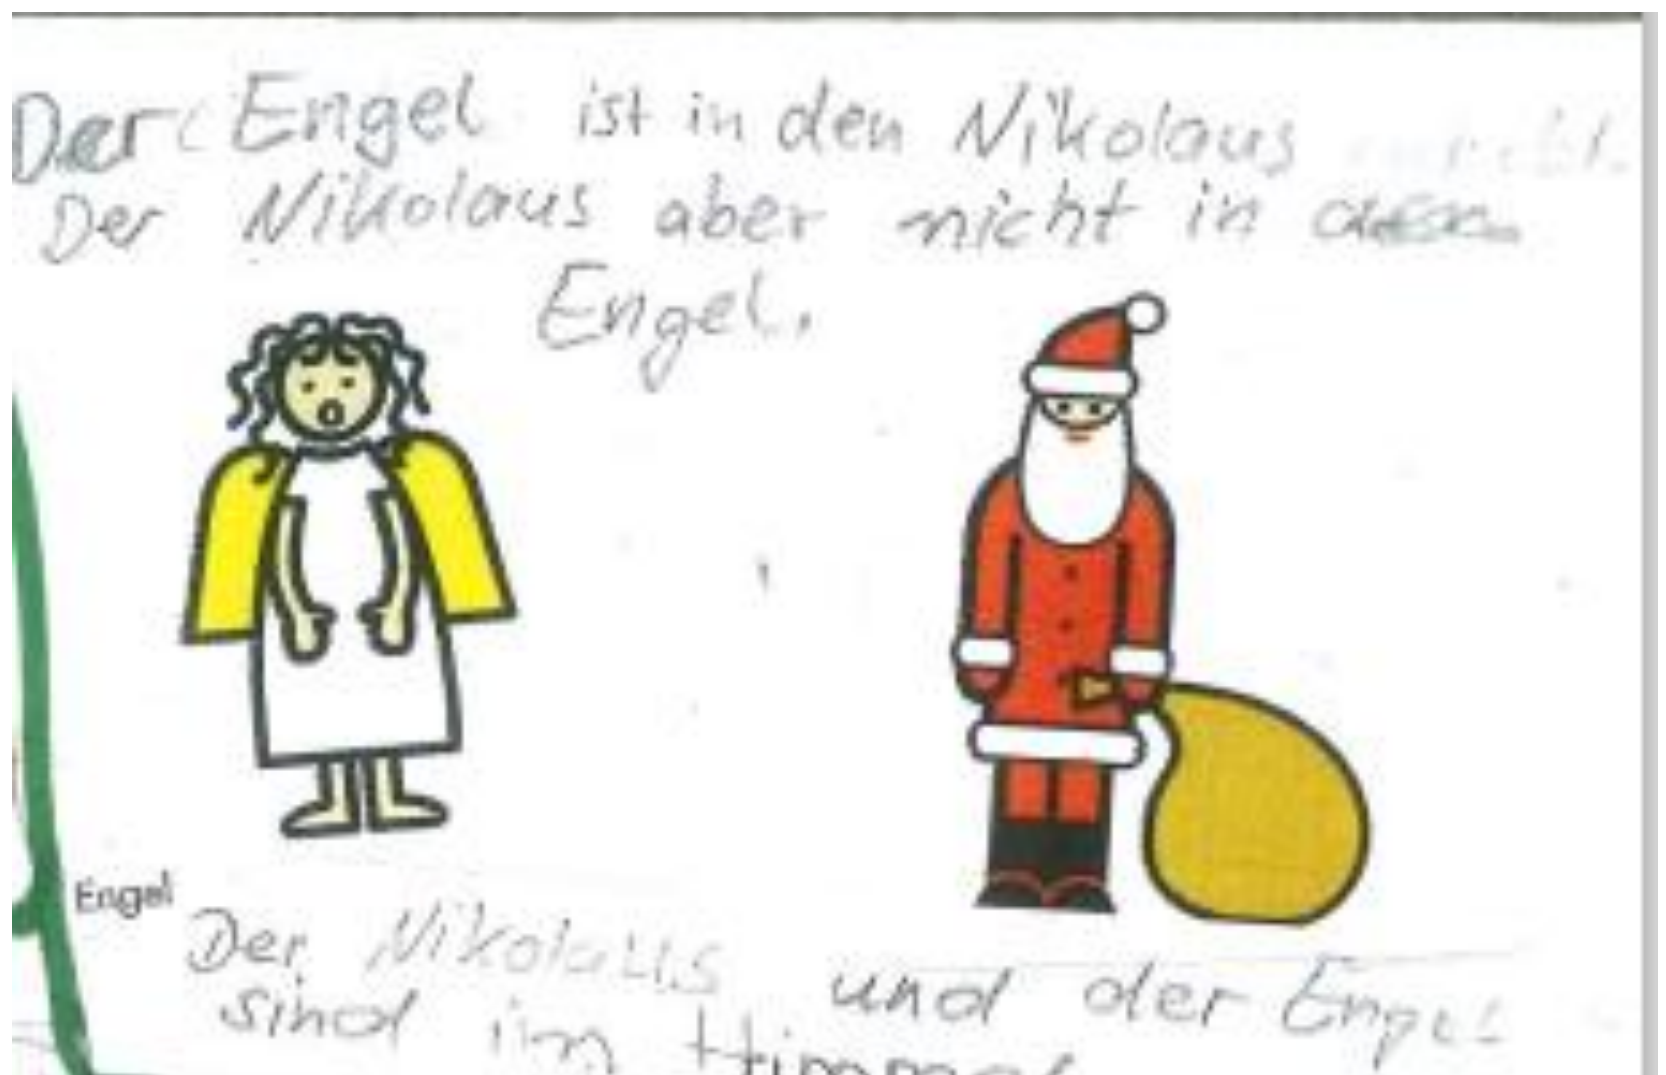 Der Engel ist in den Nikolaus
Der Nikolaus aber nicht in
Engel.
Engel
Der Nikolaus und der Engel
sind im Himmel